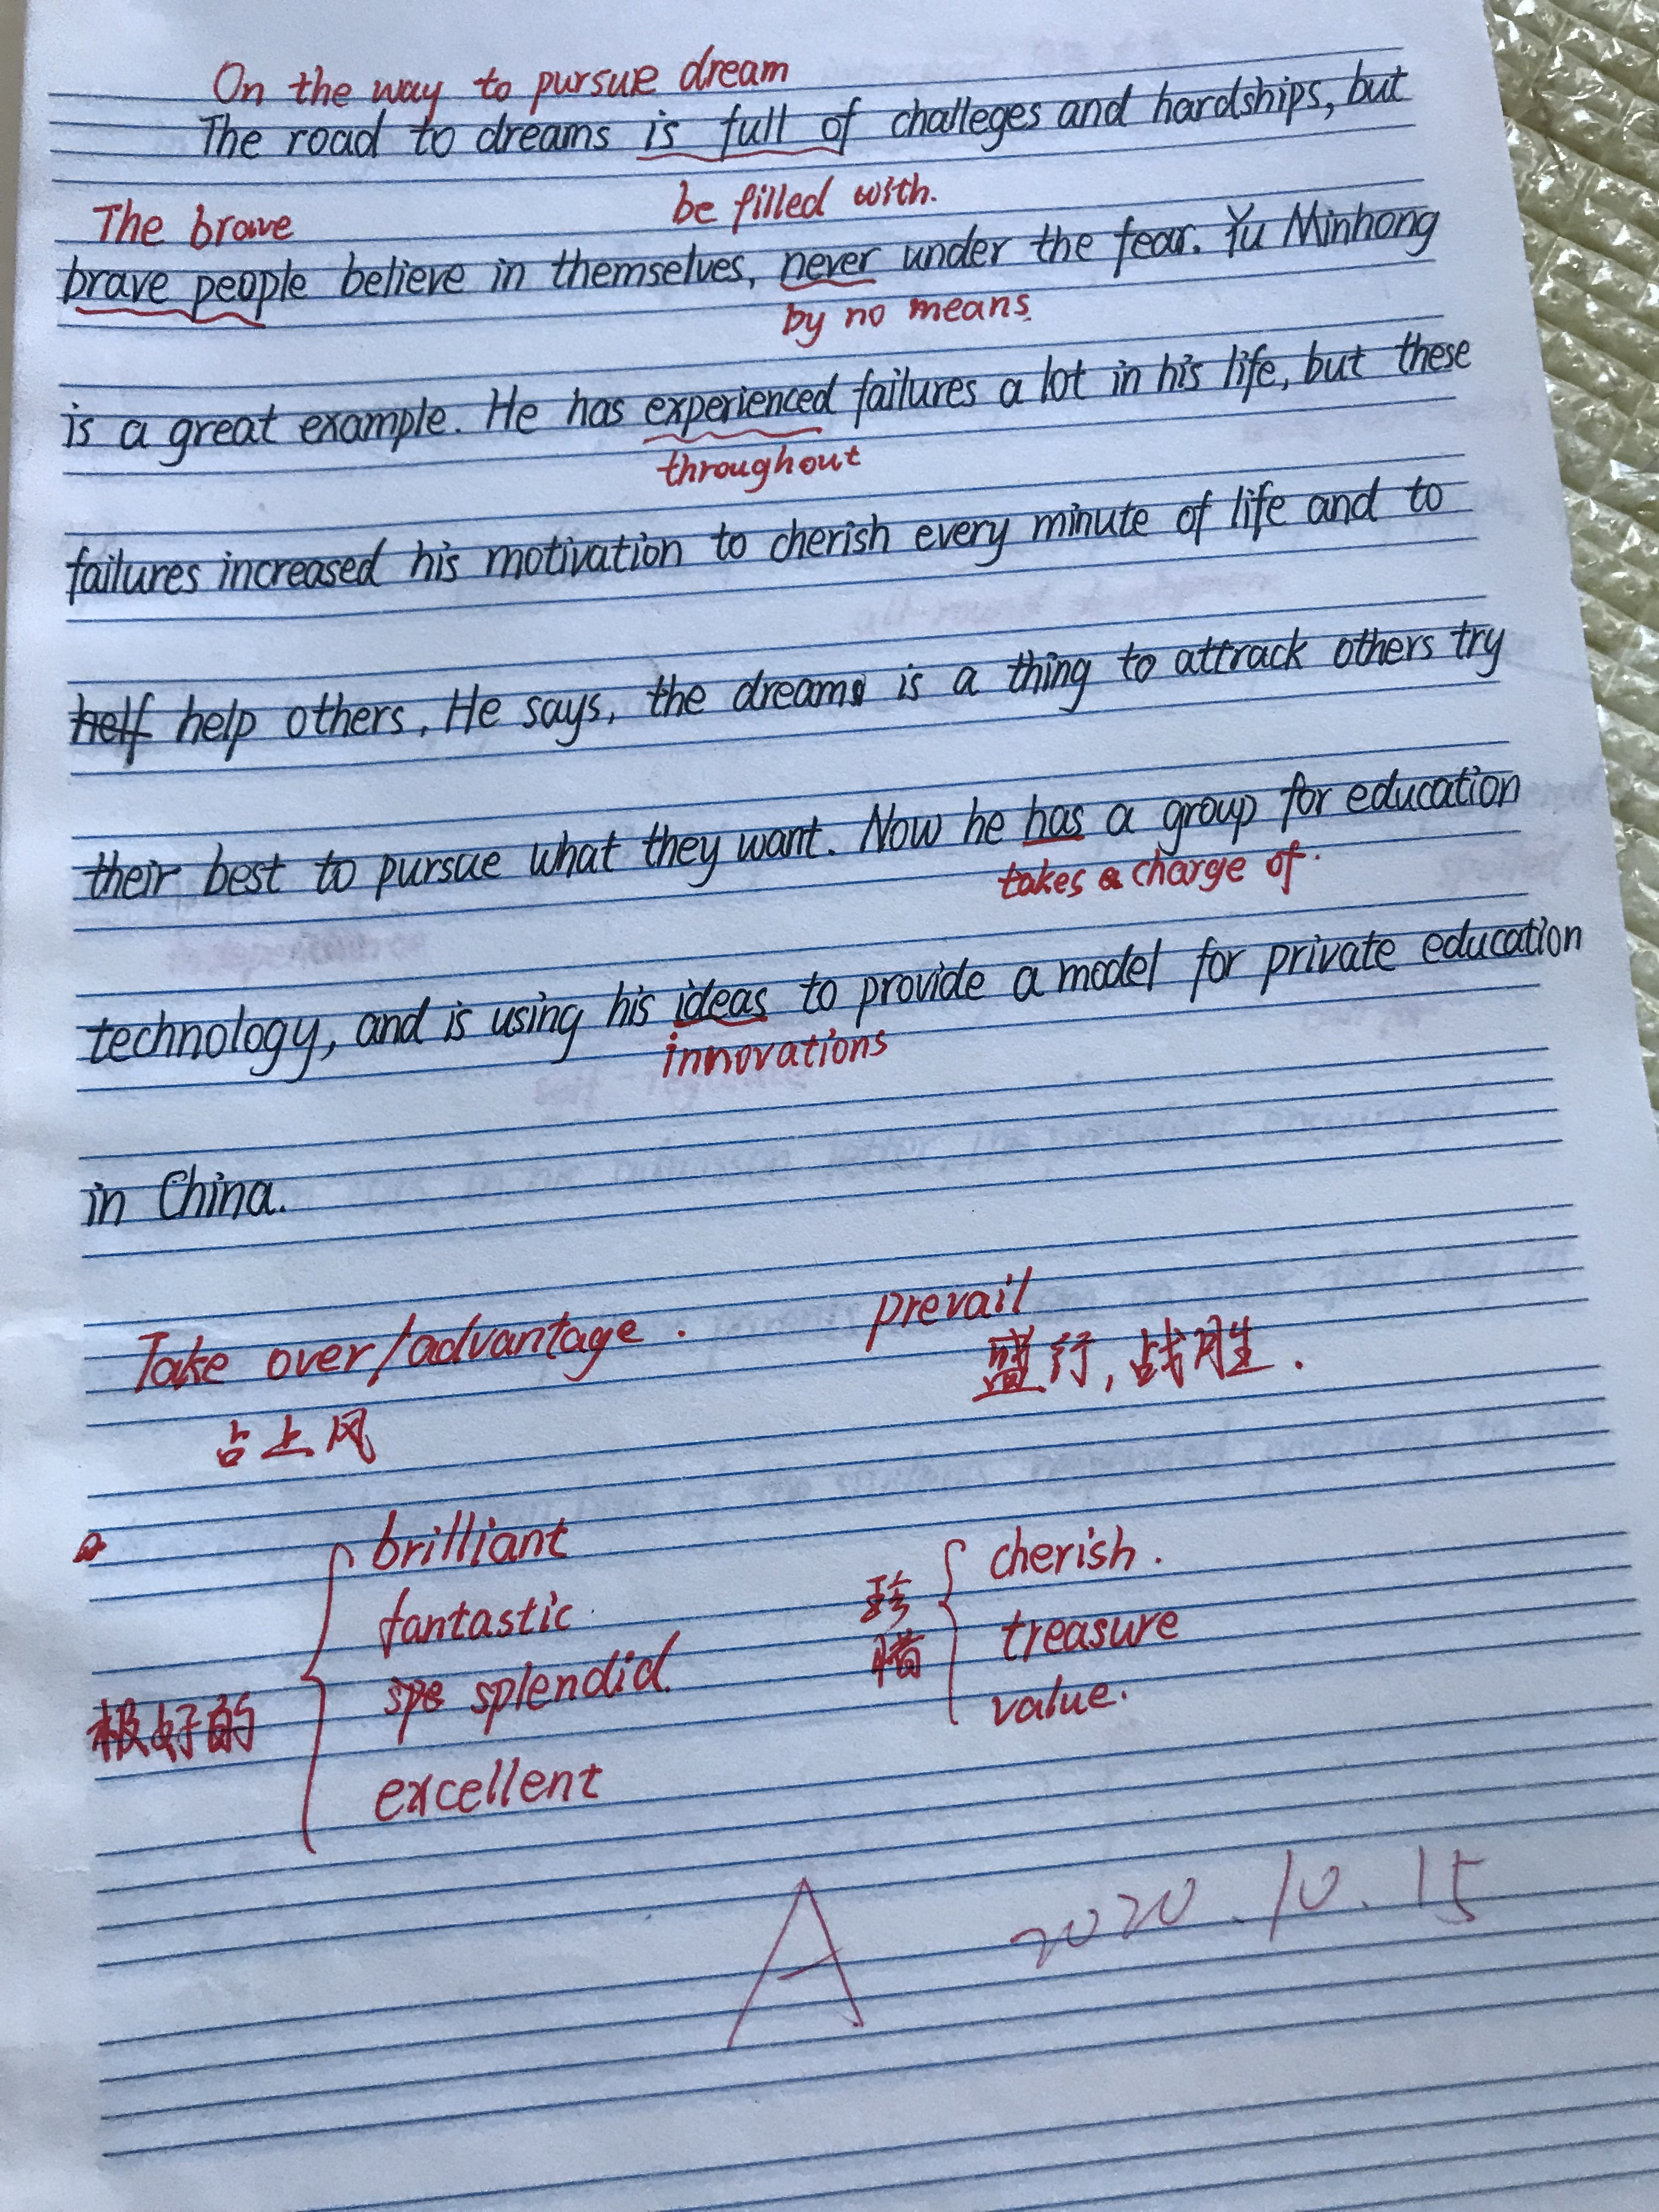 On the way to pursue dream
The road to dreams is full of challeges and hardships, but
The brave be filled with.
brave people believe in themselves, never under the fear. Yu Minhong
by no means
is a great example. He has experienced failures a lot in his life, but these
throughout
failures increased his motivation to cherish every minute of life and to
helf help others. He says, the dreams is a thing to attrack others try
their best to pursue what they want. Now he has a group for education
takes a charge of.
technology, and is using his ideas to provide a model for private education
innovations
in China.
Take over/advantage. prevail
占上风 盛行,战胜.
brilliant
fantastic
spe splendid.
excellent
极好的
cherish.
treasure
value.
珍惜
A 2020.10.15